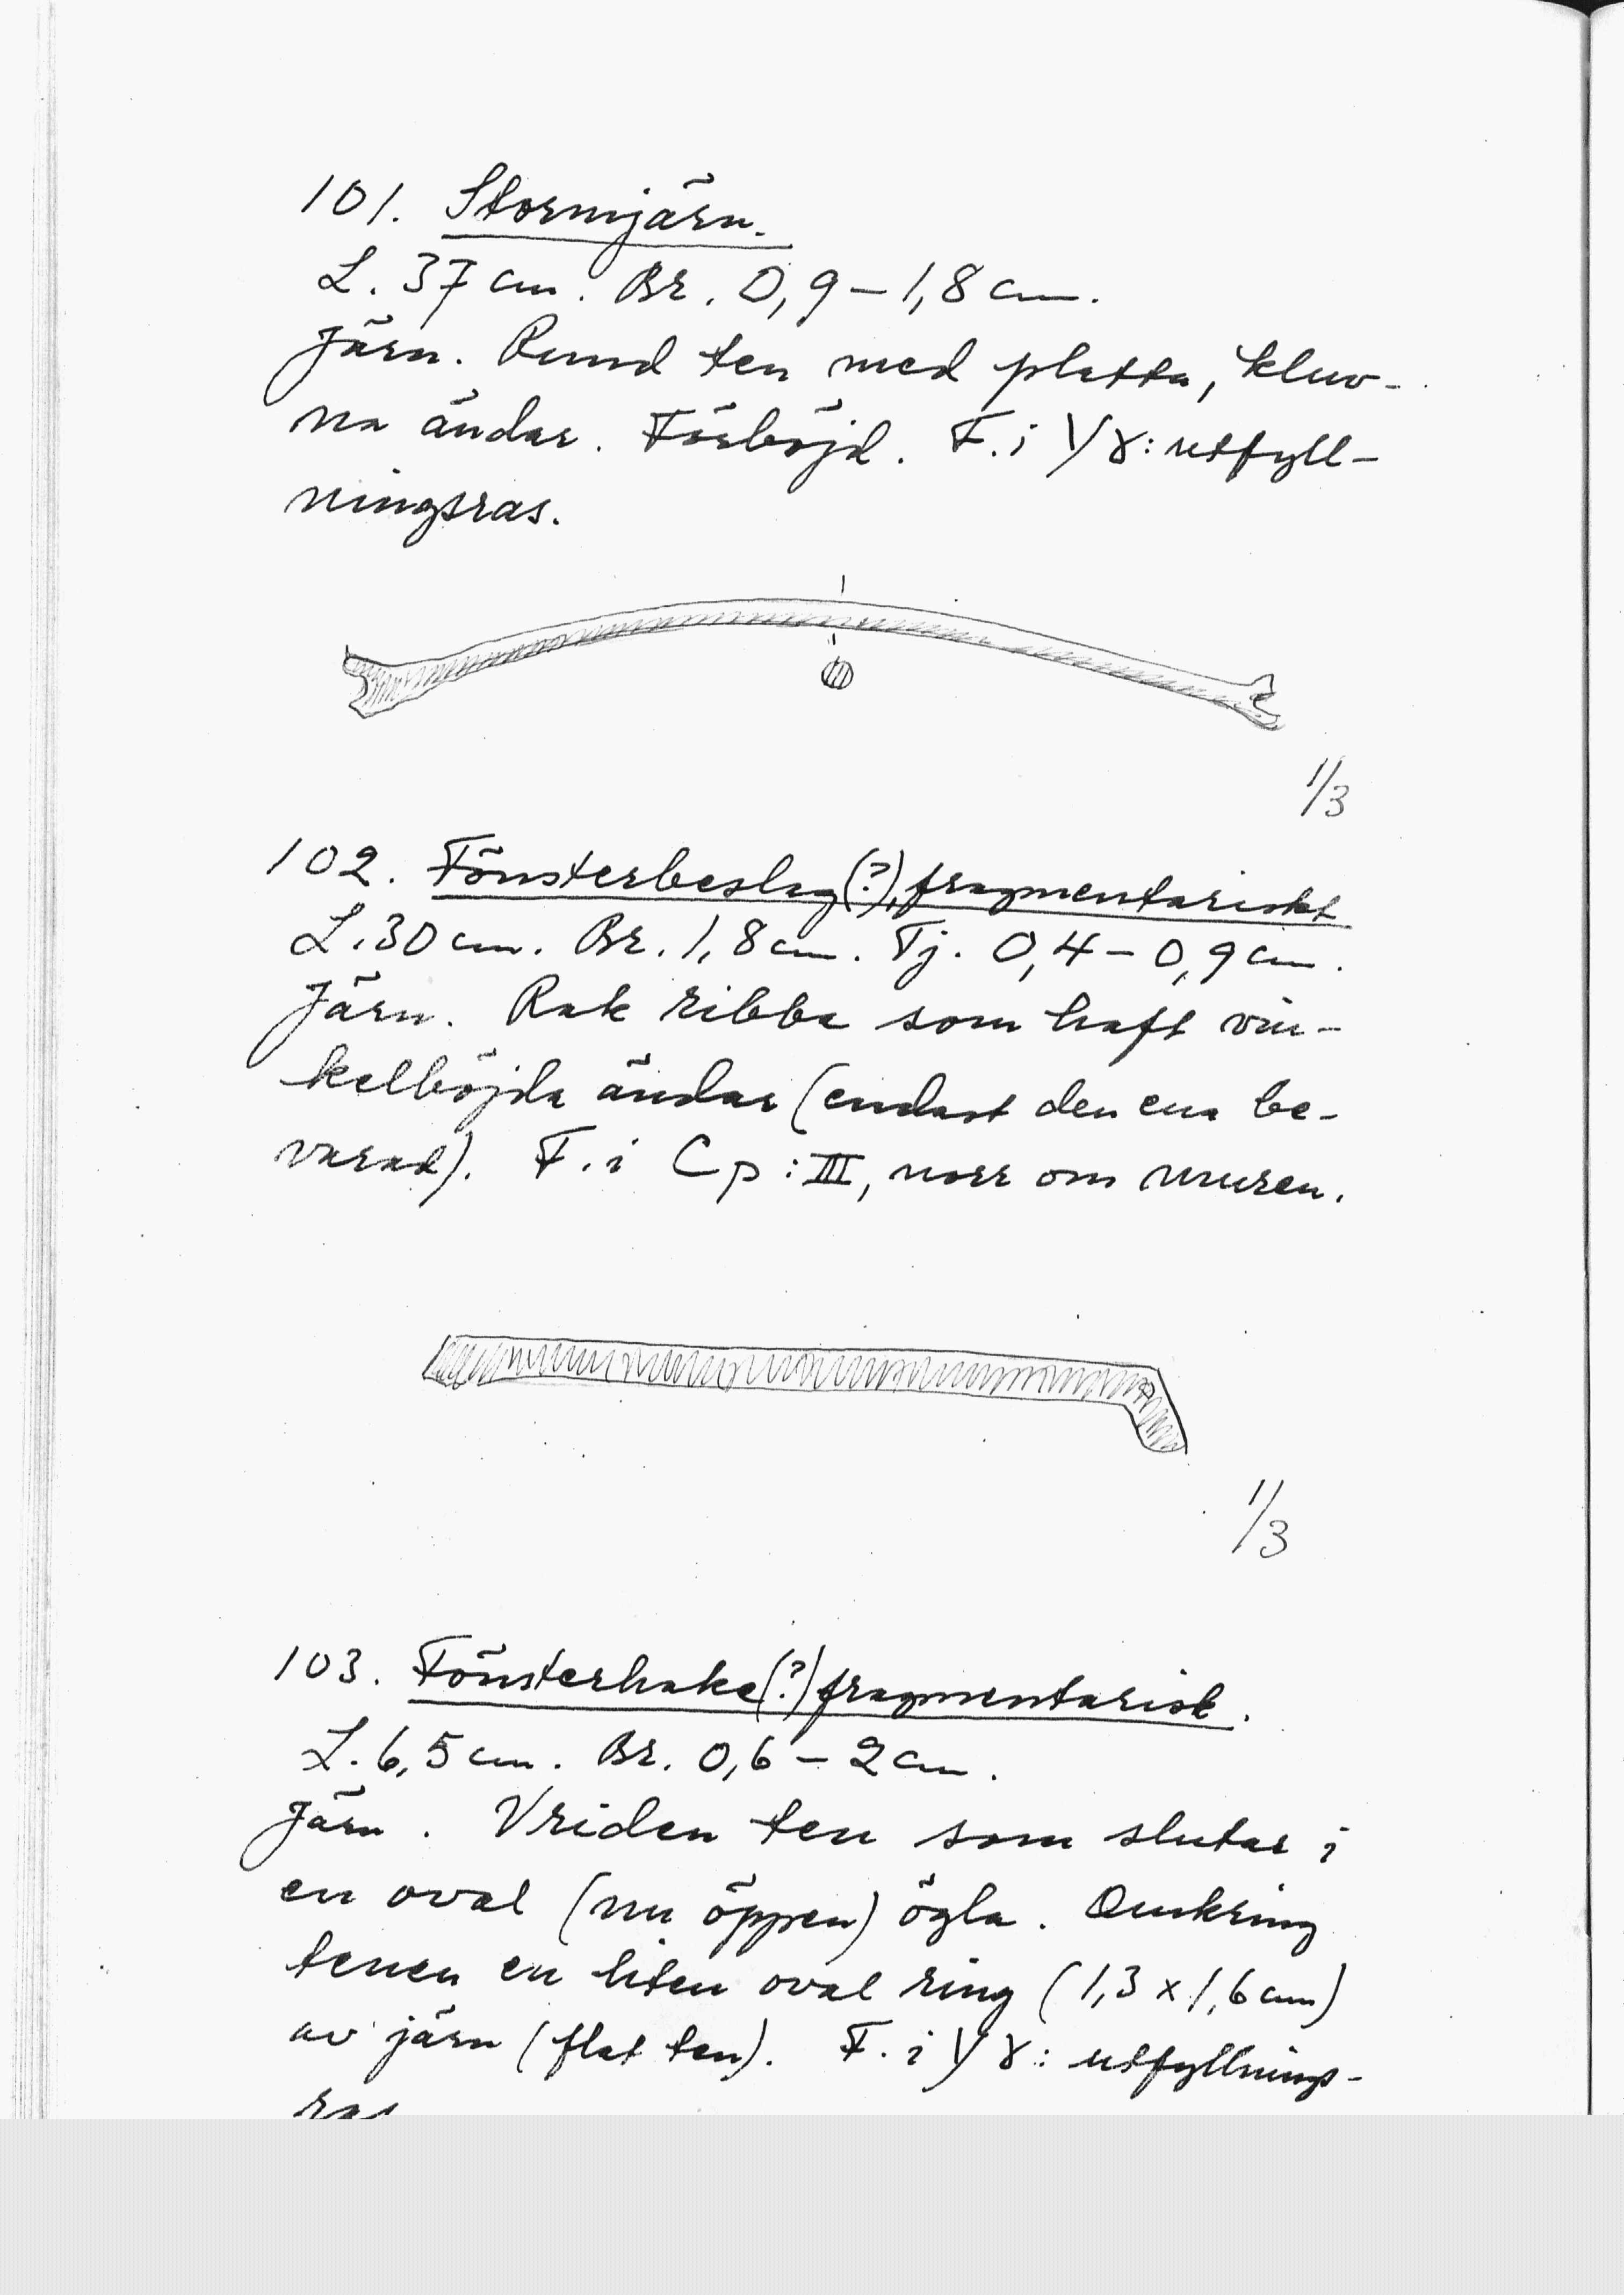 101. Stormjärn.
L. 37 cm. Br. 0,9–1,8 cm.
Järn. Rund ten med platta, kluv-
na ändar. Förböjd. F. i Yγ: utfyll-
ningsras.
1/3
102. Fönsterbeslag(?), fragmentariskt
L. 30 cm. Br. 1,8 cm. Tj. 0,4–0,9 cm.
Järn. Rak ribba som haft vin-
kelböjda ändar (endast den ena be-
varad). F. i Cp:III, norr om muren.
1/3
103. Fönsterhake(?) fragmentarisk.
L. 6,5 cm. Br. 0,6–2 cm.
Järn. Vriden ten som slutar i
en oval (nu öppen) ögla. Omkring
tenen en liten oval ring (1,3 x 1,6 cm)
av järn (flat ten). F. i Yγ: utfyllnings-
ras